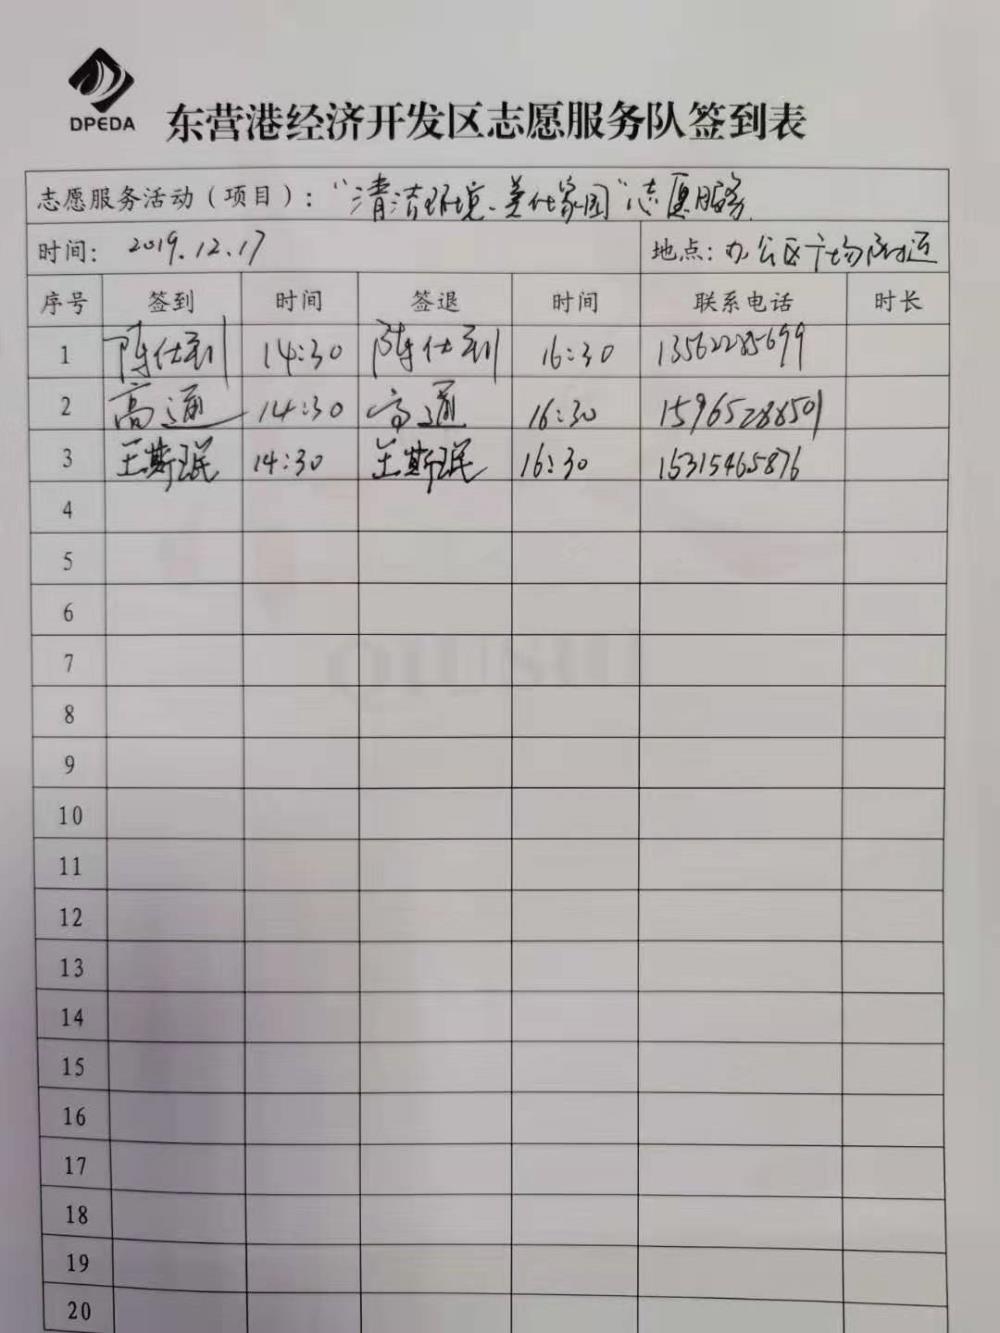 DPEDA
东营港经济开发区志愿服务队签到表
志愿服务活动（项目）：“清洁环境、美化家园”志愿服务
时间：2019.12.17 地点：办公区广场附近
序号 签到 时间 签退 时间 联系电话 时长
1 陈仕利 14:30 陈仕利 16:30 13562285699
2 高通 14:30 高通 16:30 15965288501
3 王斯珉 14:30 王斯珉 16:30 15315465876
4
5
6
7
8
9
10
11
12
13
14
15
16
17
18
19
20